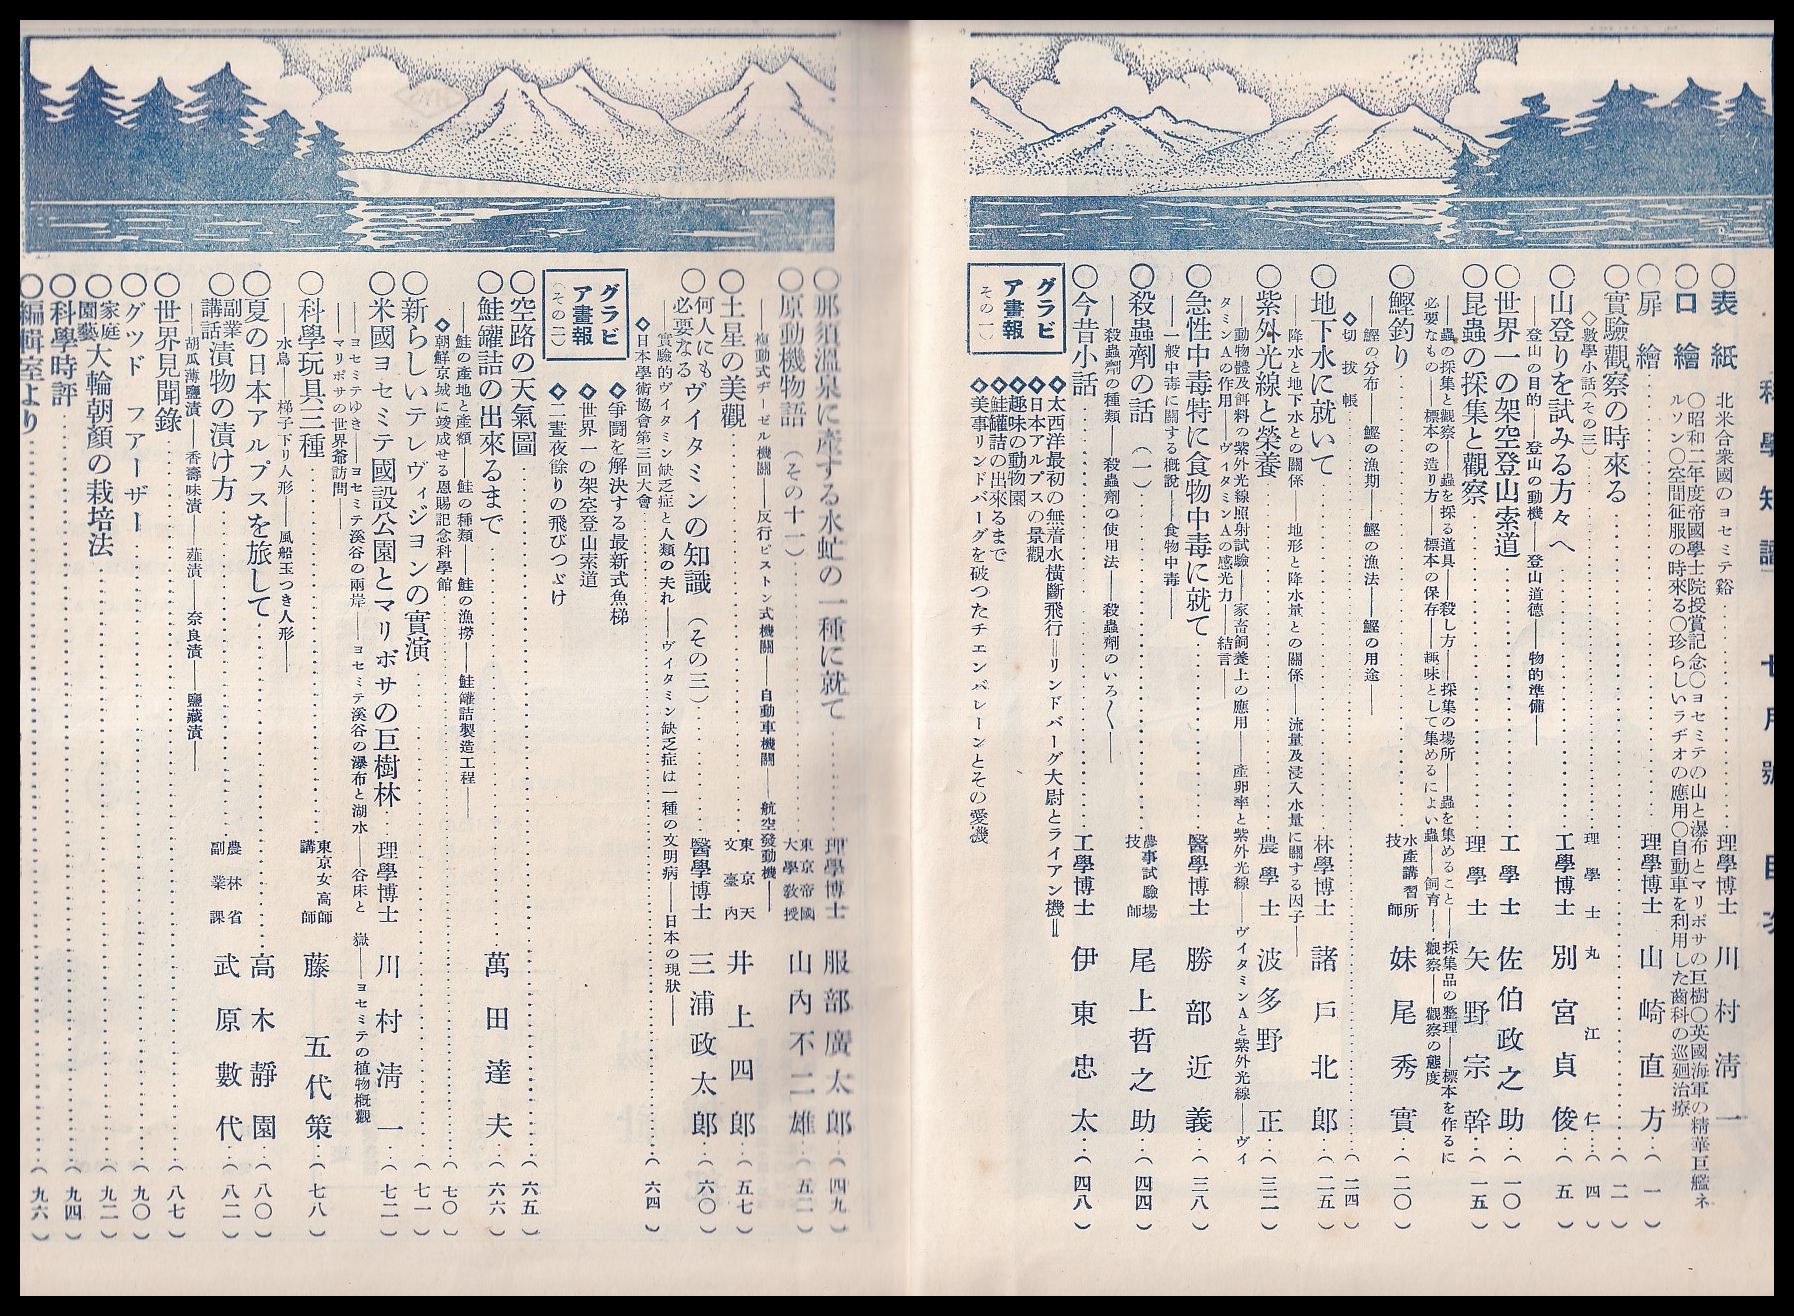 科學知識 七月號目次
〇表紙 北米合衆國のヨセミテ谿……理學博士 川村淸一
〇口繪 〇昭和二年度帝國學士院授賞記念〇ヨセミテの山と瀑布とマリポサの巨樹〇英國海軍の精華巨艦ネ
ルソン〇空間征服の時來る〇珍らしいラヂオの應用〇自動車を利用した齒科の巡廻治療
〇扉繪……理學博士 山崎直方…(一)
〇實驗觀察の時來る……(二)
◇數學小話(その三)……理學士 丸江仁…(四)
〇山登りを試みる方々へ……工學博士 別宮貞俊…(五)
登山の目的——登山の動機——登山道德——物的準備——
〇世界一の架空登山索道……工學士 佐伯政之助…(一〇)
〇昆蟲の採集と觀察……理學士 矢野宗幹…(一五)
蟲の採集と觀察——蟲を採る道具——殺し方——採集の場所——蟲を集めること——採集品の整理——標本を作るに
必要なもの——標本の造り方——標本の保存——趣味として集めるによい蟲——飼育——觀察——觀察の態度
〇鰹釣り……水產講習所技師 妹尾秀實…(二〇)
鰹の分布——鰹の漁期——鰹の漁法——鰹の用途——
◇切拔帳……(二四)
〇地下水に就いて……林學博士 諸戸北郎…(二五)
降水と地下水との關係 地形と降水量との關係——流量及浸入水量に關する因子——
〇紫外光線と榮養……農學士 波多野正…(三二)
動物體及飼料の紫外光線照射試驗——家畜飼養上の應用——產卵率と紫外光線——ヴイタミンAと紫外光線——ヴイ
タミンAの作用——ヴイタミンAの感光力——結言——
〇急性中毒特に食物中毒に就て……醫學博士 勝部近義…(三八)
一般中毒に關する槪說——食物中毒——
〇殺蟲劑の話(一)……農事試驗場技師 尾上哲之助…(四四)
殺蟲劑の種類——殺蟲劑の使用法——殺蟲劑のいろ〱——
〇今昔小話……工學博士 伊東忠太…(四八)
グラビア畫報(その一)
◇太西洋最初の無着水橫斷飛行=リンドバーグ大尉とライアン機=
◇日本アルプスの景觀
◇趣味の動物園
◇鮭罐詰の出來るまで
◇美事リンドバーグを破つたチエンバレーンとその愛機
〇那須溫泉に產する水虻の一種に就て……理學博士 服部廣太郎…(四九)
〇原動機物語(その十一)……東京帝國大學敎授 山內不二雄…(五二)
複動式ヂーゼル機關——反行ピストン式機關——自動車機關——航空發動機——
〇土星の美觀……東京天文臺內 井上四郎…(五七)
〇何人にも必要なるヴイタミンの知識(その三)……醫學博士 三浦政太郎…(六〇)
實驗的ヴイタミン缺乏症と人類の夫れ——ヴイタミン缺乏症は一種の文明病——日本の現狀——
◇日本學術協會第三回大會……(六四)
グラビア畫報(その二)
◇爭鬪を解決する最新式魚梯
◇世界一の架空登山索道
◇二晝夜餘りの飛びつゞけ
〇空路の天氣圖……(六五)
〇鮭罐詰の出來るまで……萬田達夫…(六六)
鮭の產地と產額——鮭の種類——鮭の漁撈——鮭罐詰製造工程——
◇朝鮮京城に竣成せる恩賜記念科學館……(七〇)
〇新らしいテレヴィジヨンの實演……(七一)
〇米國ヨセミテ國設公園とマリポサの巨樹林…理學博士 川村淸一…(七二)
ヨセミテゆき——ヨセミテ溪谷の兩岸——ヨセミテ溪谷の瀑布と湖水——谷床と嶽——ヨセミテの植物槪觀
——マリポサの世界爺訪問——
〇科學玩具三種……東京女高師講師 藤五代策…(七八)
——水鳥 梯子下り人形——風船玉つき人形——
〇夏の日本アルプスを旅して……高木靜園…(八〇)
〇副業講話 漬物の漬け方……農林省副業課 武原數代…(八二)
胡瓜薄鹽漬——香壽味漬——薤漬——奈良漬——鹽藏漬——
〇世界見聞錄……(八七)
〇グツド フアーザー……(九〇)
〇家庭園藝 大輪朝顏の栽培法……(九二)
〇科學時評……(九四)
〇編輯室より……(九六)